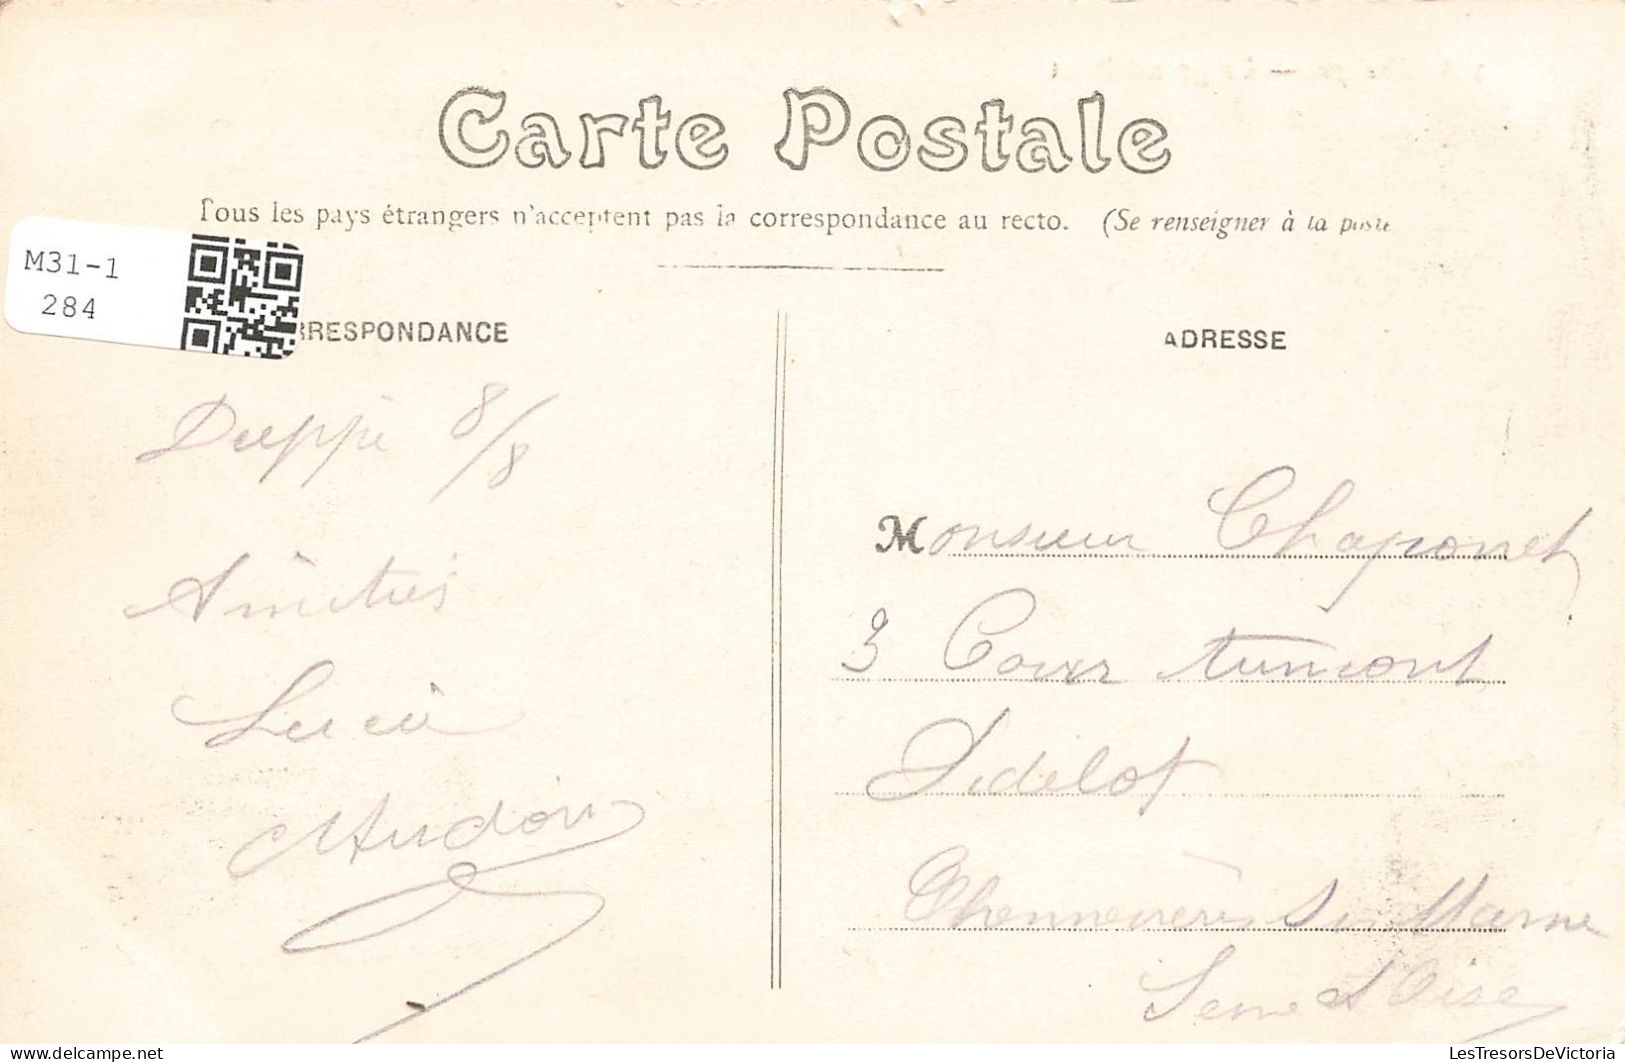 Carte Postale
Tous les pays étrangers n'acceptent pas la correspondance au recto. (Se renseigner à la poste
M31-1
284
RRESPONDANCE
ADRESSE
Dieppe 8/8
Amitiés
Lucie
Monsieur Chaponet
3 Cour
Chennevières sur Marne
Seine et Oise
LesTresorsDeVictoria